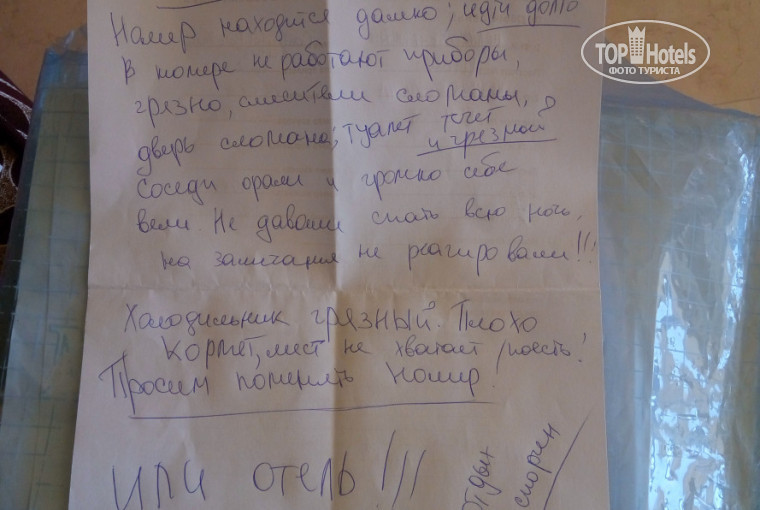 Номер находится далеко, идти долго
В номере не работают приборы,
грязно, смесители сломаны,
дверь сломана, туалет течет
и грязный
Соседи орали и громко себе
вели. Не давали спать всю ночь,
на замечания не реагировали!!!
Холодильник грязный. Плохо
кормят, мест не хватает поесть!
Просим поменять номер!
Или отель!!!
отдых
испорчен
TOP Hotels
ФОТО ТУРИСТА